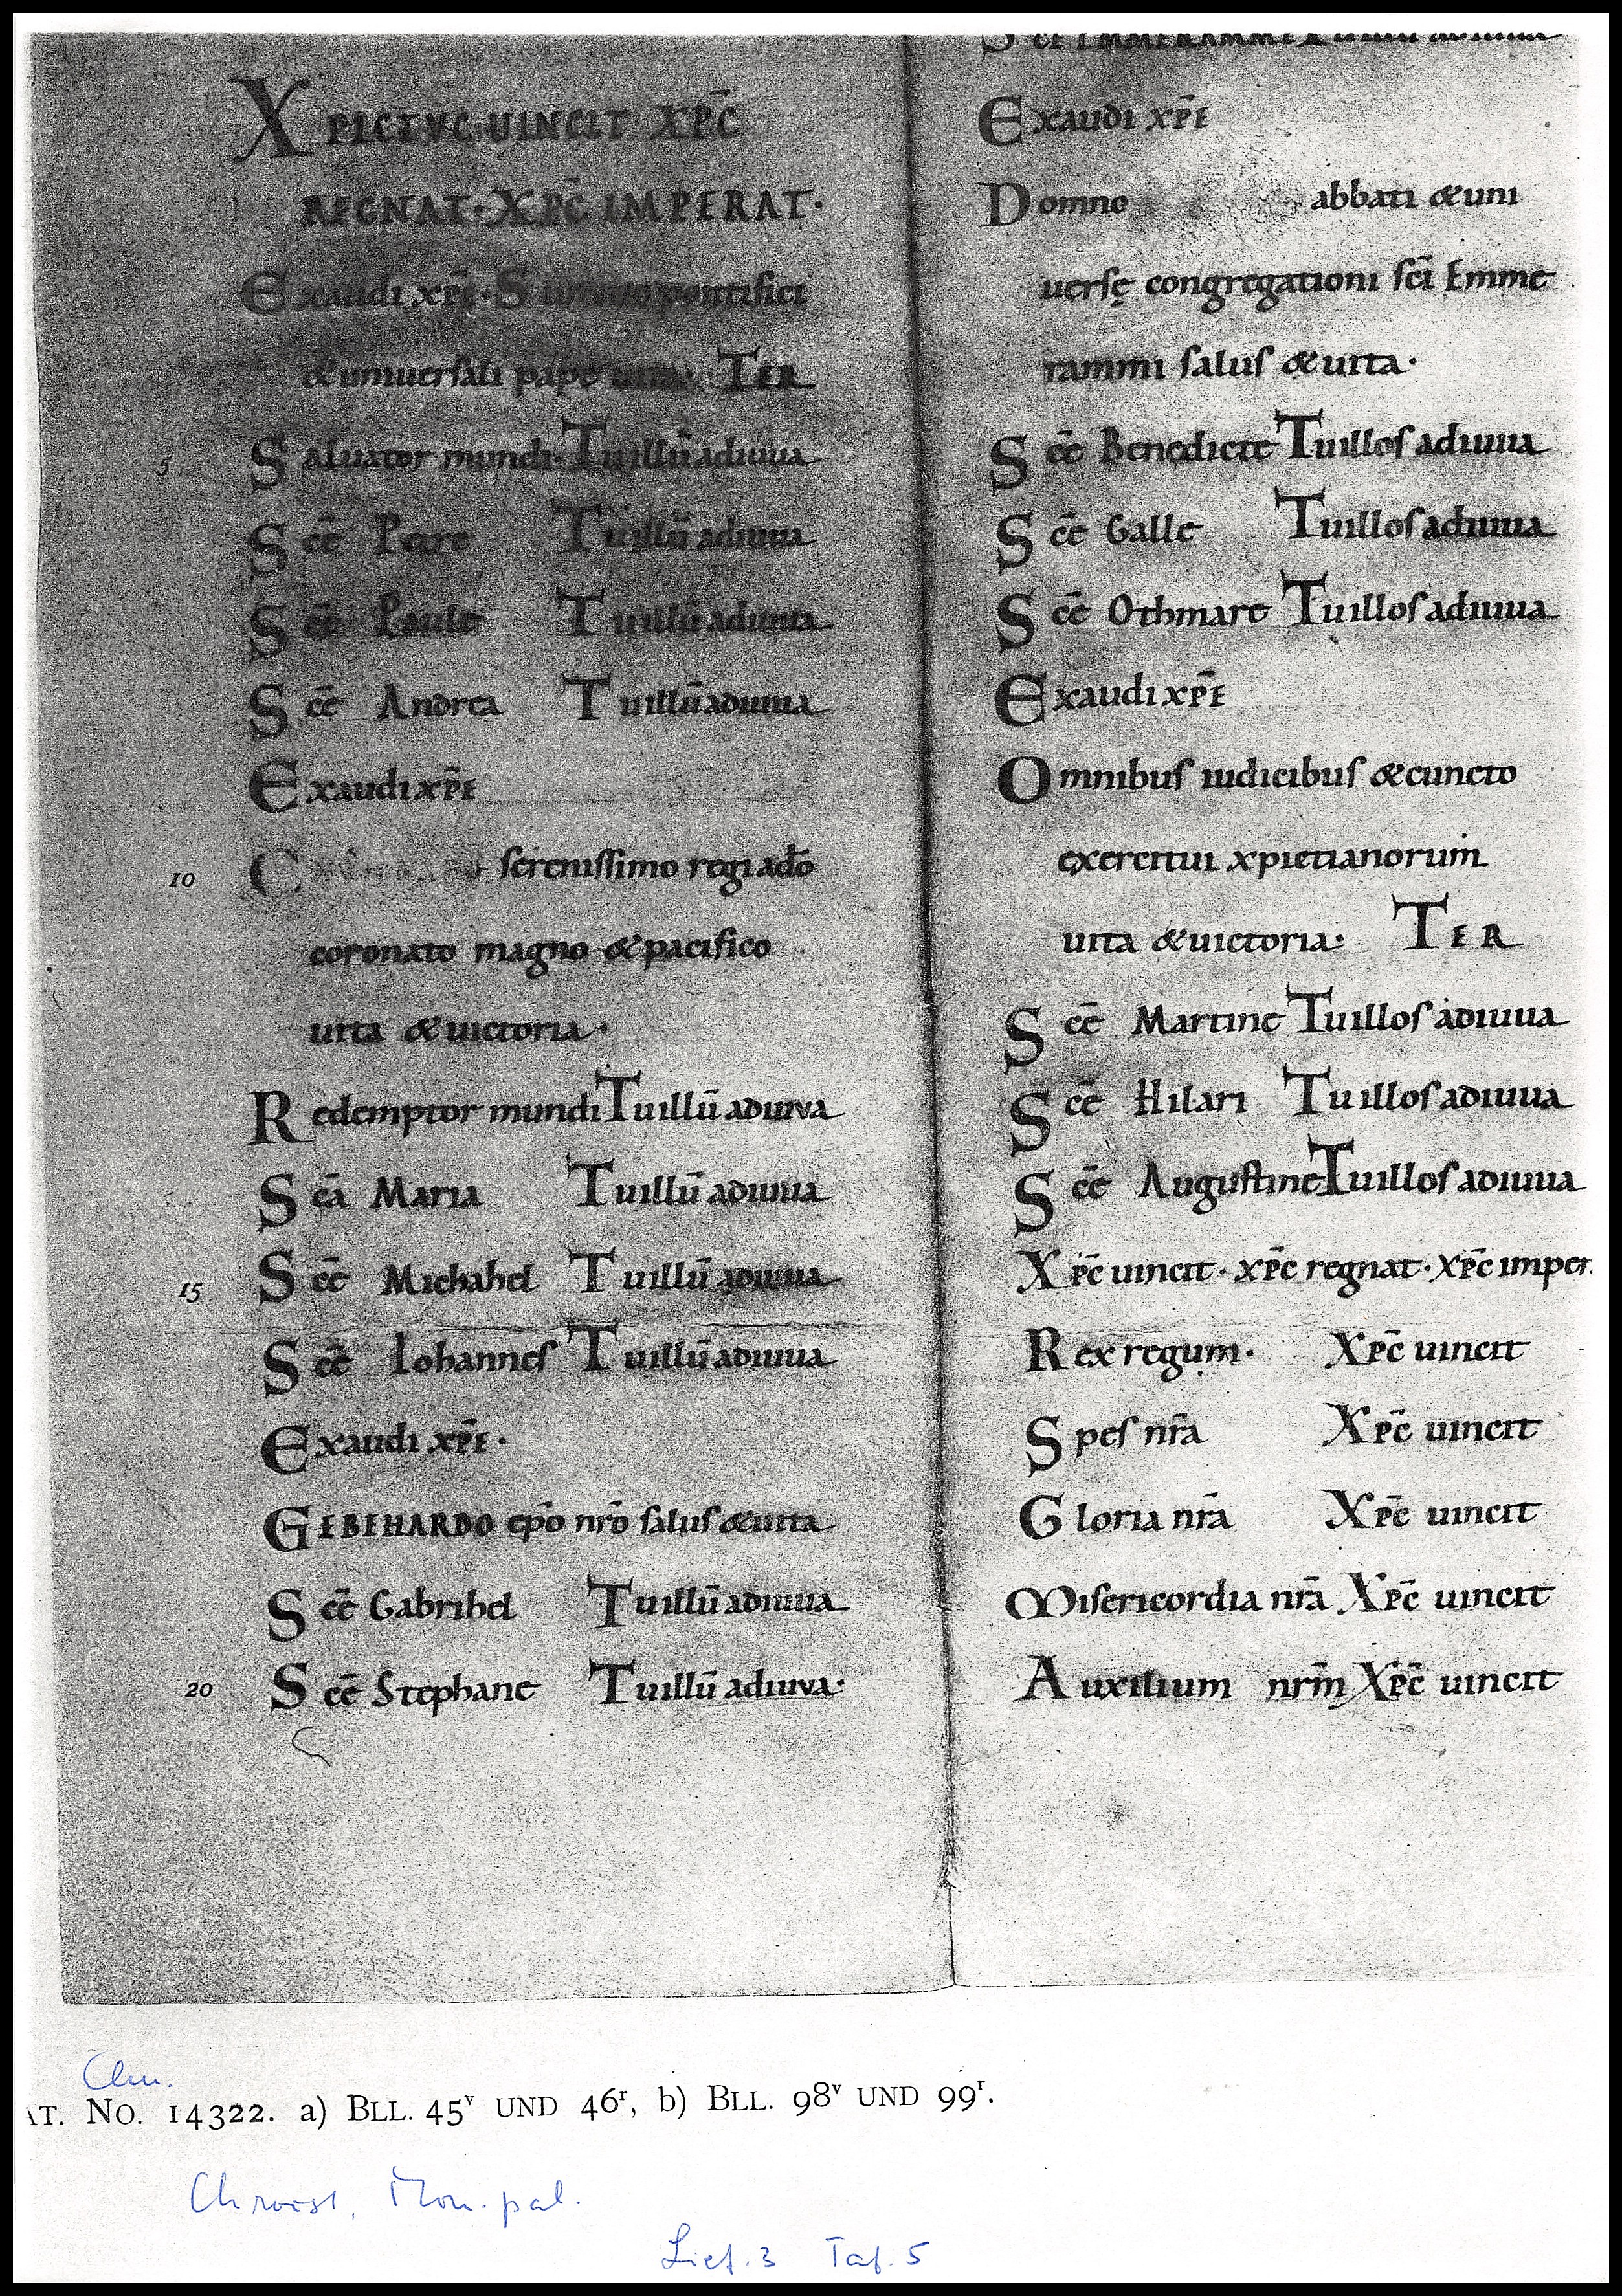 XPICTVC·UINCIT XPC̄
REGNAT·XPC̄ IMPERAT·
Exaudi xp̄e·Summo pontifici
& uniuersali pape uita· TER
5 Saluator mundi·Tu illū adiuua
Sc̄e Petre Tu illū adiuua
Sc̄e Paule Tu illū adiuua
Sc̄e Andrea Tu illū adiuua
Exaudi xp̄e
10 C serenissimo regi a dō
coronato magno & pacifico
uita & uictoria·
Redemptor mundi Tu illū adiuva
Sc̄a Maria Tu illū adiuua
15 Sc̄e Michahel Tu illū adiuua
Sc̄e Iohannes Tu illū adiuua
Exaudi xp̄e·
GEBEHARDO ep̄o nr̄o salus & uita
Sc̄e Gabrihel Tu illū adiuua
20 Sc̄e Stephane Tu illū adiuva·
Sc̄e EMMERAMME Tu illum adiuua
Exaudi xp̄e
Domno abbati & uni
uersę congregationi sc̄i Emme
rammi salus & uita·
Sc̄e Benedicte Tu illos adiuua
Sc̄e Galle Tu illos adiuua
Sc̄e Othmare Tu illos adiuua
Exaudi xp̄e
Omnibus iudicibus & cuncto
exercitui xpictianorum
uita & uictoria· TER
Sc̄e Martine Tu illos adiuua
Sc̄e Hilari Tu illos adiuua
Sc̄e Augustine Tu illos adiuua
Xpc̄ uincit·xpc̄ regnat·xpc̄ imper.
Rex regum· Xpc̄ uincit
Spes nr̄a Xpc̄ uincit
Gloria nr̄a Xpc̄ uincit
Misericordia nr̄a Xpc̄ uincit
Auxilium nr̄m Xpc̄ uincit
Clm.
AT. No. 14322. a) BLL. 45v UND 46r, b) BLL. 98v UND 99r.
Chroust, Mon. pal.
Lief. 3 Taf. 5